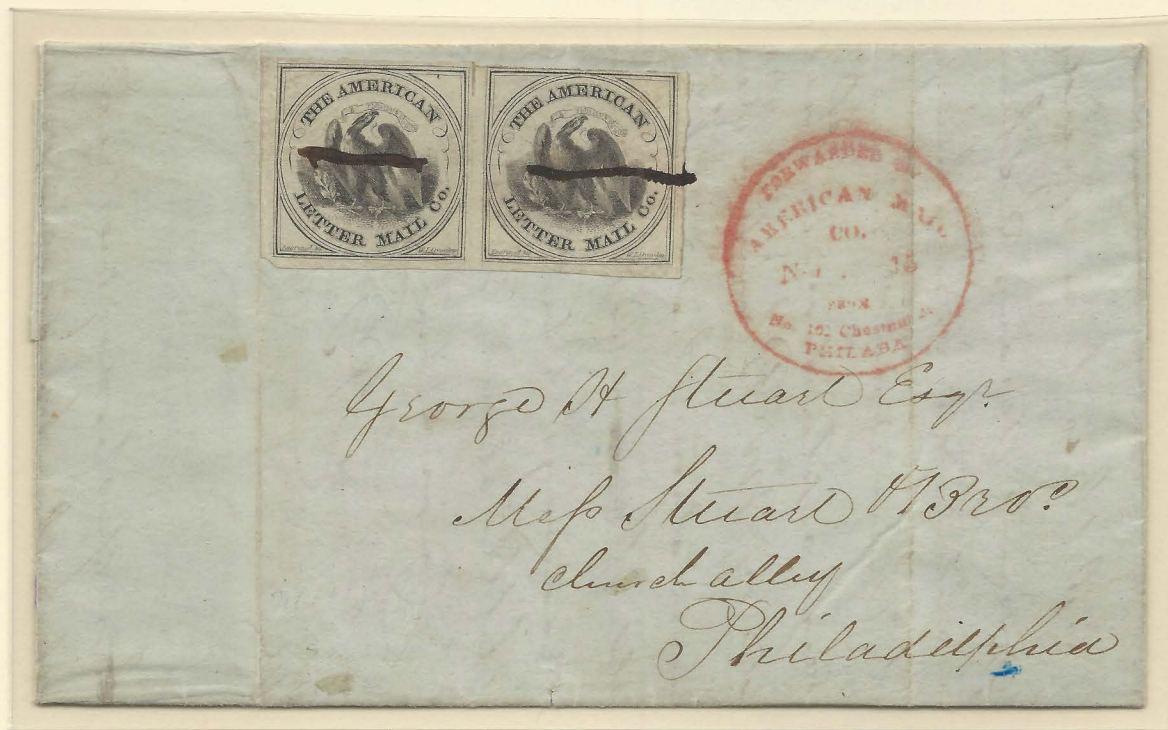 THE AMERICAN
LETTER MAIL Co.
THE AMERICAN
LETTER MAIL Co.
FORWARDED BY
AMERICAN MAIL
CO.
15
FROM
No. 101 Chestnut St
PHILADA
George H Stuart Esqr.
Mess Stuart & Bro.
church alley
Philadelphia